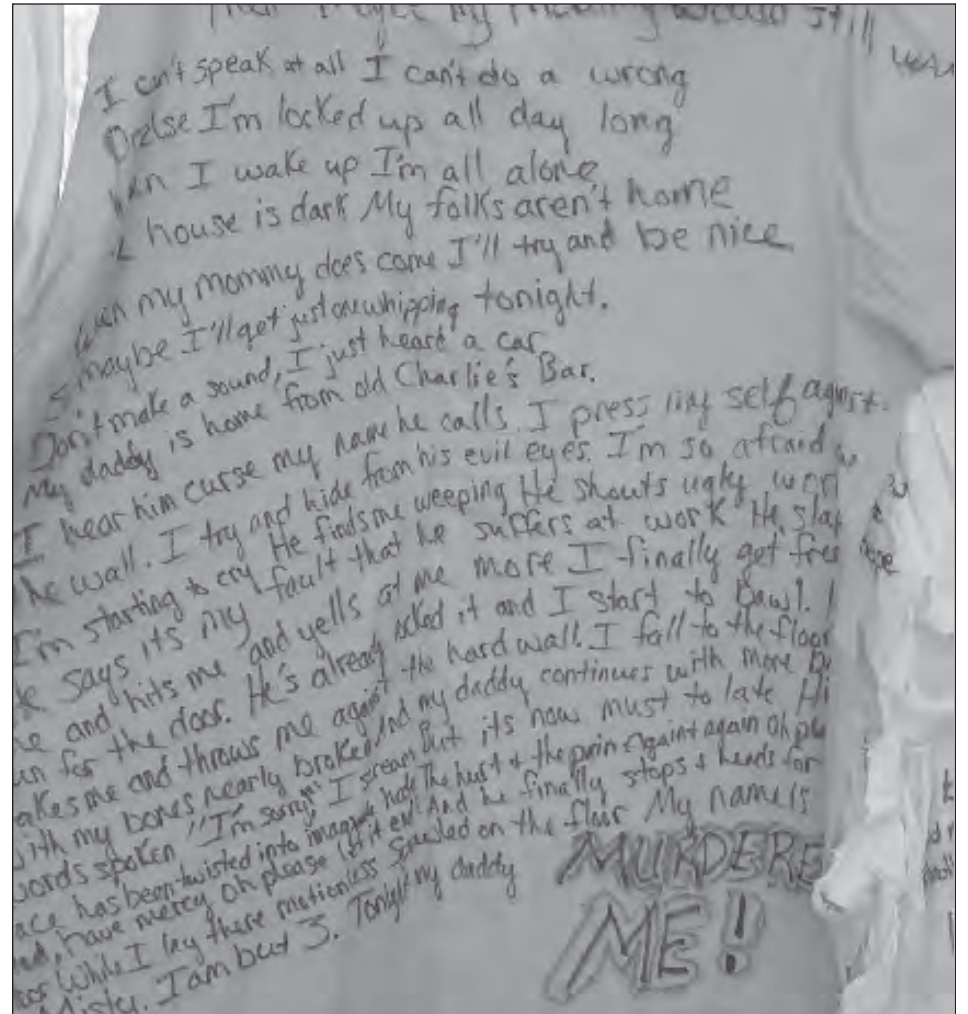 my would still
WAN
I can't speak at all I can't do a wrong
Orelse I'm locked up all day long
I wake up I'm all alone
house is dark My folks aren't home
my mommy does come I'll try and be nice
maybe I'll get just one whipping tonight.
Don't make a sound, I just heard a car
My daddy is home from old Charlie's Bar.
I hear him curse my name he calls. I press my self aginst.
he wall. I try and hide from his evil eyes. I'm so afraid
I'm starting to cry He finds me weeping He shouts ugly
e says its my fault that he suffers at work He slap
e and hits me and yells at me more I finally get free
un for the door. He's already locked it and I start to Bawl.
akes me and throws me against the hard wall. I fall to the floor
with my bones nearly broken, And my daddy continues with more
words spoken "I'm sorry!" I scream But its now must to late Hi
ace has been twisted into the hurt & the pain again & again oh
have mercy Oh please let it end! And he finally stops & heads for
oor While I lay there motionless on the floor My name is
Misty. I am but 3. Tonight my daddy
MURDERE
ME!